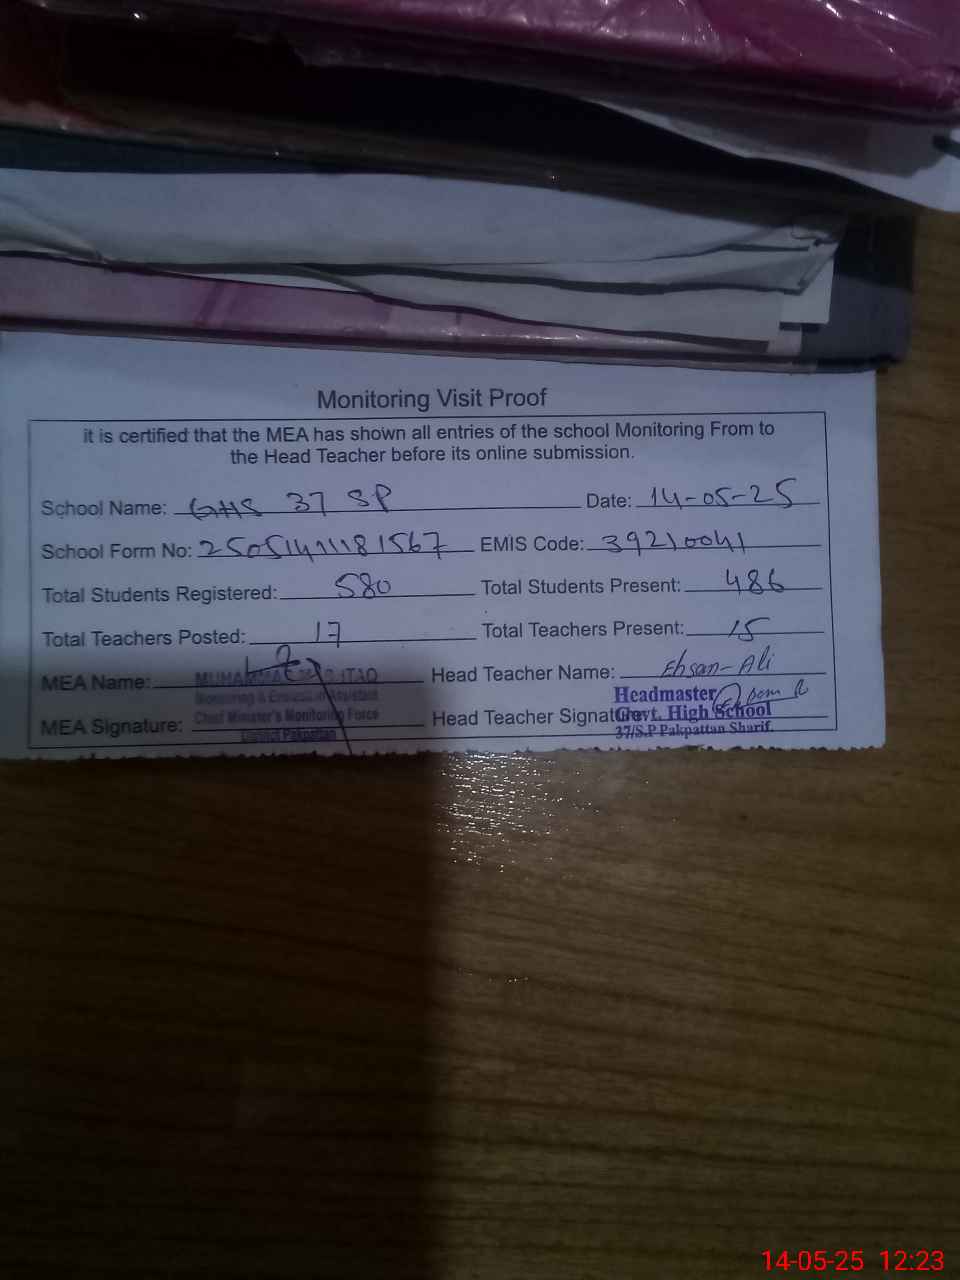 Monitoring Visit Proof
it is certified that the MEA has shown all entries of the school Monitoring From to
the Head Teacher before its online submission.
School Name: GHS 37 SP Date: 14-05-25
School Form No: 250514111181567 EMIS Code: 39210041
Total Students Registered: 580 Total Students Present: 486
Total Teachers Posted: 17 Total Teachers Present: 15
MEA Name: Head Teacher Name: Ehsan-Ali
Monitoring & Evaluation Assistant Headmaster
MEA Signature: Chief Minister's Monitoring Force Head Teacher Signature: Govt. High School
District Pakpattan 37/S.P Pakpattan Sharif.
14-05-25 12:23